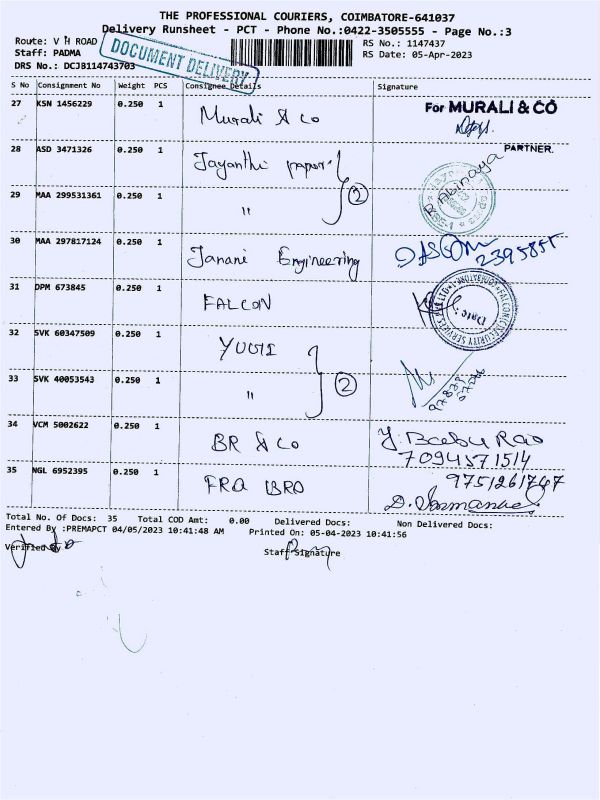 THE PROFESSIONAL COURIERS, COIMBATORE-641037
Delivery Runsheet - PCT - Phone No.:0422-3505555 - Page No.:3
Route: V H ROAD
RS No.: 1147437
Staff: PADMA
RS Date: 05-Apr-2023
DRS No.: DCJB114743703
DOCUMENT DELIVERY
S No Consignment No Weight PCS Consignee Details Signature
27 KSN 1456229 0.250 1 Murali & Co For MURALI & CO
PARTNER.
28 ASD 3471326 0.250 1 Jayanthi paper 2
R. Abinaya
29 MAA 299531361 0.250 1 "
30 MAA 297817124 0.250 1 Janani Engineering
2395855
31 DPM 673845 0.250 1 FALCON
FALCON SECURITY SERVICES
Date :
32 SVK 60347509 0.250 1 YUGI 2
33 SVK 40053543 0.250 1 "
34 VCM 5002622 0.250 1 BR & Co Y. Babu Rao
7094571514
35 NGL 6952395 0.250 1 FRA BRO 9751261767
Total No. Of Docs: 35 Total COD Amt: 0.00 Delivered Docs: Non Delivered Docs:
Entered By :PREMAPCT 04/05/2023 10:41:48 AM Printed On: 05-04-2023 10:41:56
Verified By Staff Signature